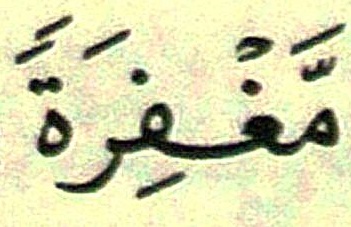 مَّغْفِرَةً